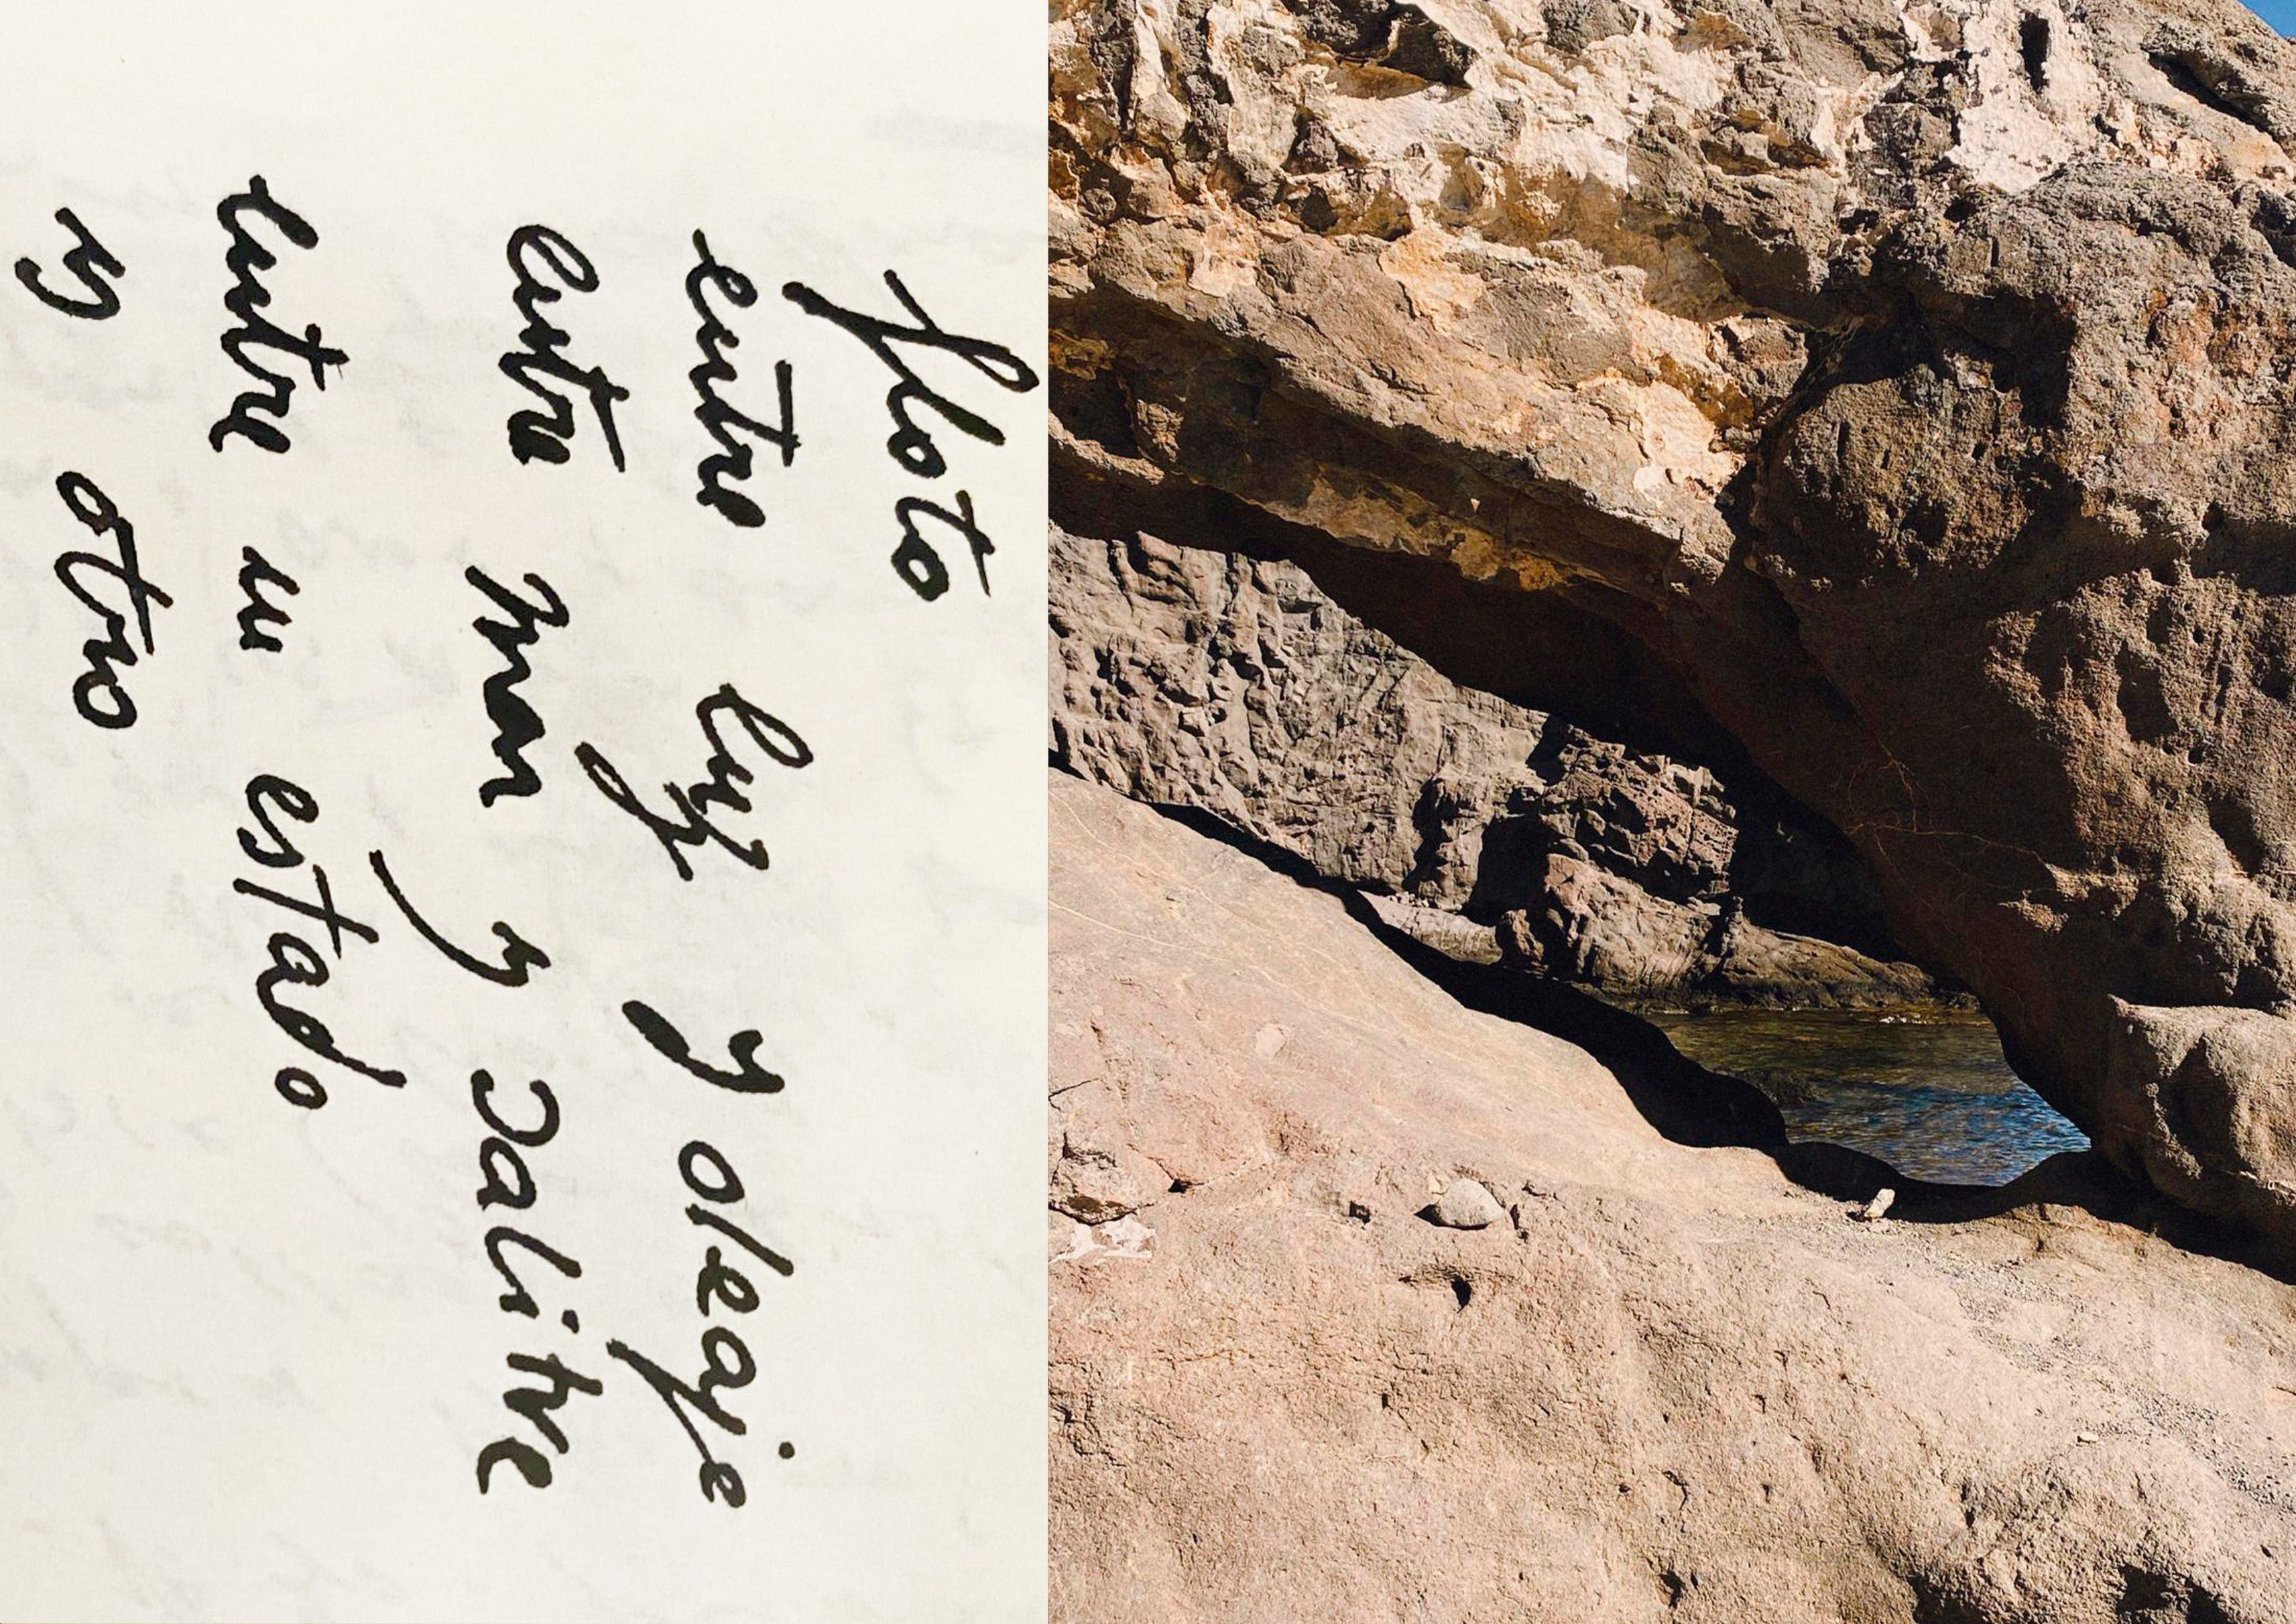 floto
entre luz y oleaje
entre mar y salitre
entre un estado
y otro